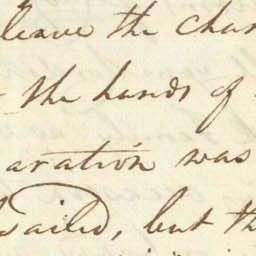 leave the char
the hands of
aration was
ailed, but th